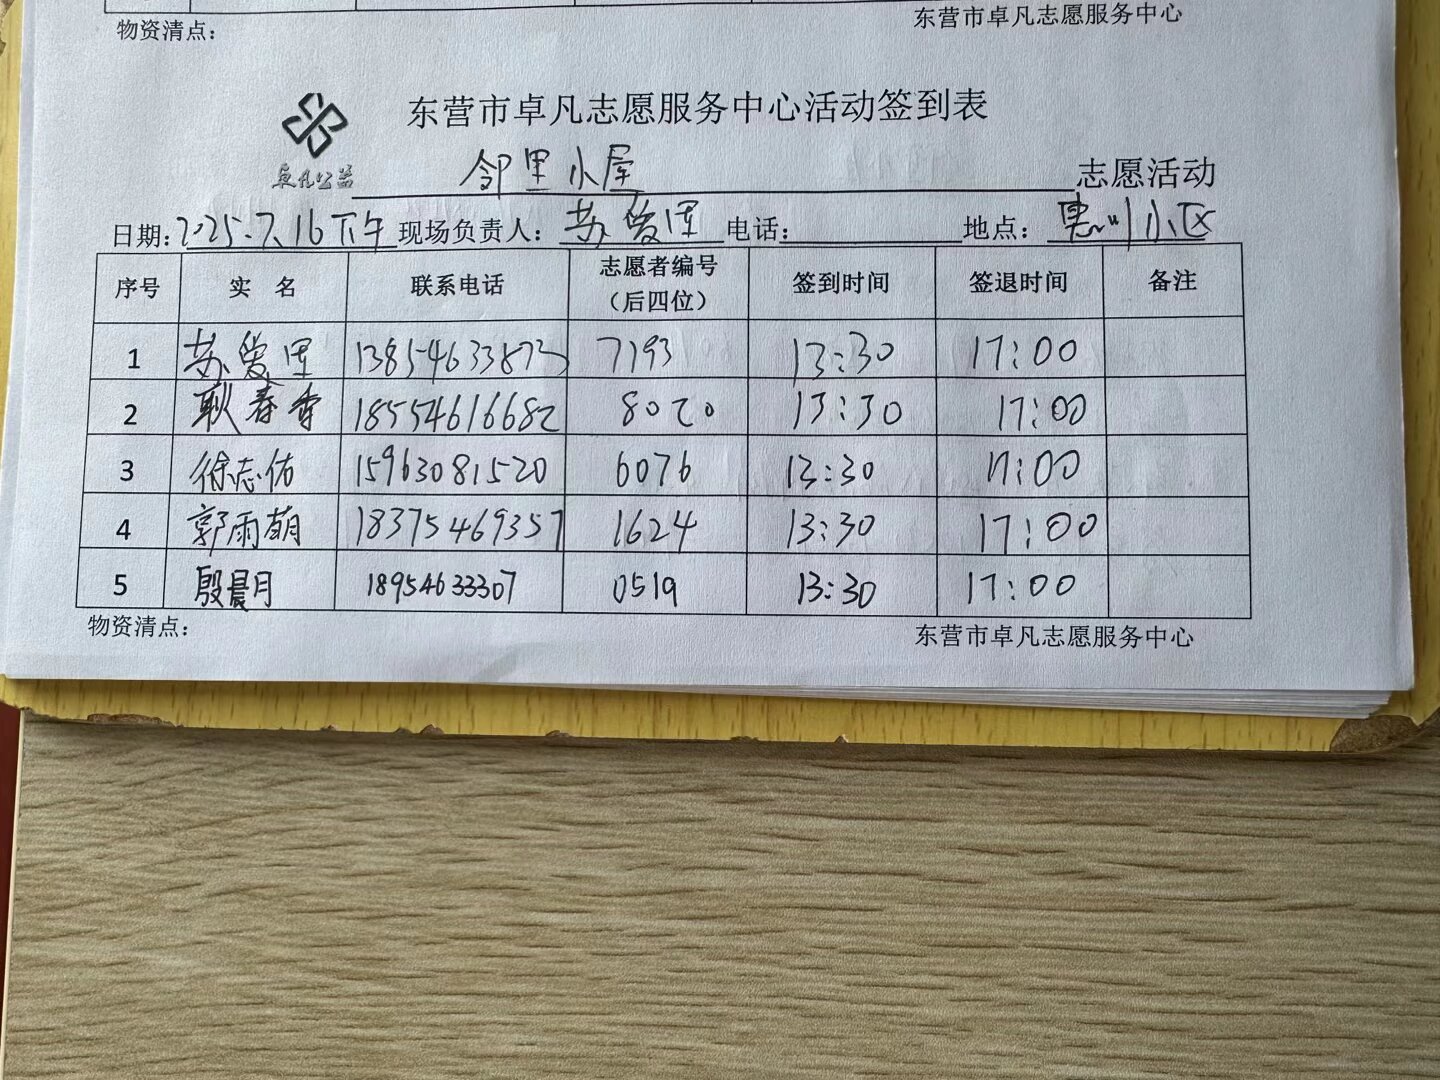 物资清点： 东营市卓凡志愿服务中心
东营市卓凡志愿服务中心活动签到表
卓凡公益
邻里小屋 志愿活动
日期：2025.7.16下午 现场负责人：苏爱 电话： 地点：惠州小区
序号 实 名 联系电话 志愿者编号（后四位） 签到时间 签退时间 备注
1 苏爱 13854633873 7193 13:30 17:00
2 耿春香 18554616682 8020 13:30 17:00
3 徐志佑 15963081520 6076 13:30 17:00
4 郭雨萌 18375469357 1624 13:30 17:00
5 殷晨月 18954633307 0519 13:30 17:00
物资清点： 东营市卓凡志愿服务中心